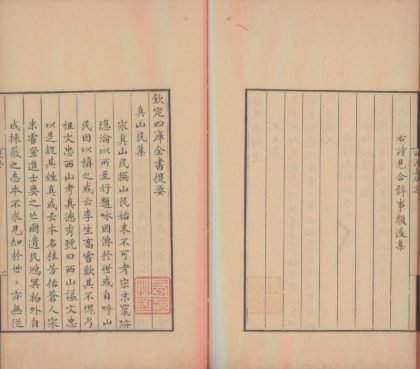 右詩見合璧事類後集
欽定四庫全書提要
真山民集
宋真山民撰山民始末不可考宋末竄跡
隱淪以所至好題咏因傳於世或自呼山
民因以稱之或云李生喬嘗歎其不愧乃
祖文忠西山考真德秀號曰西山諡文忠
以是疑其姓真或云本名桂芳括蒼人宋
末嘗登進士要之亡國遺民鴻冥物外自
成採薇之志本不求見知於世〻亦無從